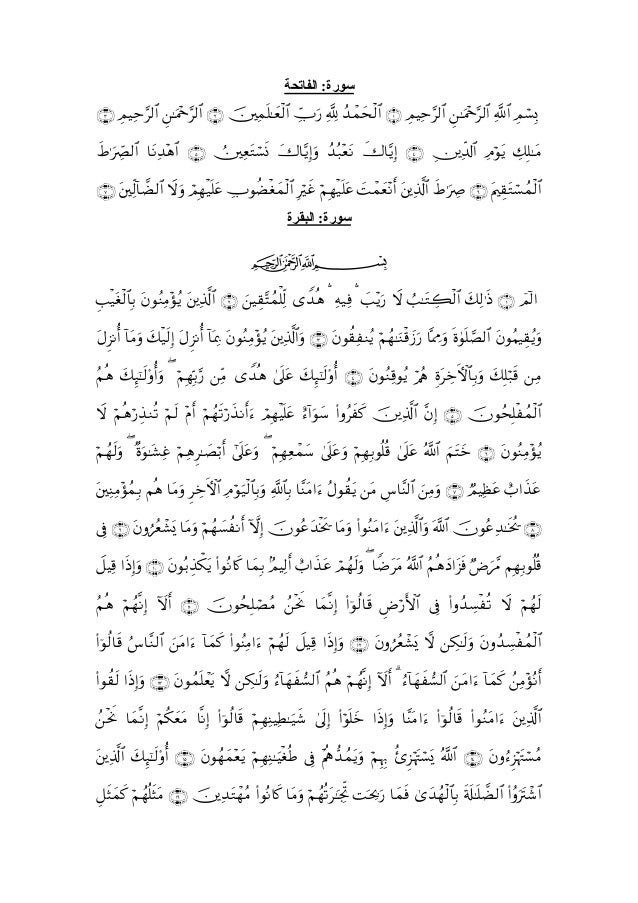 سورة: الفاتحة
بِسْمِ ٱللَّهِ ٱلرَّحْمَٰنِ ٱلرَّحِيمِ ۝١ ٱلْحَمْدُ لِلَّهِ رَبِّ ٱلْعَٰلَمِينَ ۝٢ ٱلرَّحْمَٰنِ ٱلرَّحِيمِ ۝٣
مَٰلِكِ يَوْمِ ٱلدِّينِ ۝٤ إِيَّاكَ نَعْبُدُ وَإِيَّاكَ نَسْتَعِينُ ۝٥ ٱهْدِنَا ٱلصِّرَٰطَ
ٱلْمُسْتَقِيمَ ۝٦ صِرَٰطَ ٱلَّذِينَ أَنْعَمْتَ عَلَيْهِمْ غَيْرِ ٱلْمَغْضُوبِ عَلَيْهِمْ وَلَا ٱلضَّآلِّينَ ۝٧
سورة: البقرة
بِسْمِ ٱللَّهِ ٱلرَّحْمَٰنِ ٱلرَّحِيمِ
الٓمٓ ۝١ ذَٰلِكَ ٱلْكِتَٰبُ لَا رَيْبَ ۛ فِيهِ ۛ هُدًى لِّلْمُتَّقِينَ ۝٢ ٱلَّذِينَ يُؤْمِنُونَ بِٱلْغَيْبِ
وَيُقِيمُونَ ٱلصَّلَوٰةَ وَمِمَّا رَزَقْنَٰهُمْ يُنفِقُونَ ۝٣ وَٱلَّذِينَ يُؤْمِنُونَ بِمَآ أُنزِلَ إِلَيْكَ وَمَآ أُنزِلَ
مِن قَبْلِكَ وَبِٱلْءَاخِرَةِ هُمْ يُوقِنُونَ ۝٤ أُو۟لَٰٓئِكَ عَلَىٰ هُدًى مِّن رَّبِّهِمْ ۖ وَأُو۟لَٰٓئِكَ هُمُ
ٱلْمُفْلِحُونَ ۝٥ إِنَّ ٱلَّذِينَ كَفَرُوا۟ سَوَآءٌ عَلَيْهِمْ ءَأَنذَرْتَهُمْ أَمْ لَمْ تُنذِرْهُمْ لَا
يُؤْمِنُونَ ۝٦ خَتَمَ ٱللَّهُ عَلَىٰ قُلُوبِهِمْ وَعَلَىٰ سَمْعِهِمْ ۖ وَعَلَىٰٓ أَبْصَٰرِهِمْ غِشَٰوَةٌ ۖ وَلَهُمْ
عَذَابٌ عَظِيمٌ ۝٧ وَمِنَ ٱلنَّاسِ مَن يَقُولُ ءَامَنَّا بِٱللَّهِ وَبِٱلْيَوْمِ ٱلْءَاخِرِ وَمَا هُم بِمُؤْمِنِينَ
۝٨ يُخَٰدِعُونَ ٱللَّهَ وَٱلَّذِينَ ءَامَنُوا۟ وَمَا يَخْدَعُونَ إِلَّآ أَنفُسَهُمْ وَمَا يَشْعُرُونَ ۝٩ فِى
قُلُوبِهِم مَّرَضٌ فَزَادَهُمُ ٱللَّهُ مَرَضًا ۖ وَلَهُمْ عَذَابٌ أَلِيمٌۢ بِمَا كَانُوا۟ يَكْذِبُونَ ۝١٠ وَإِذَا قِيلَ
لَهُمْ لَا تُفْسِدُوا۟ فِى ٱلْأَرْضِ قَالُوٓا۟ إِنَّمَا نَحْنُ مُصْلِحُونَ ۝١١ أَلَآ إِنَّهُمْ هُمُ
ٱلْمُفْسِدُونَ وَلَٰكِن لَّا يَشْعُرُونَ ۝١٢ وَإِذَا قِيلَ لَهُمْ ءَامِنُوا۟ كَمَآ ءَامَنَ ٱلنَّاسُ قَالُوٓا۟
أَنُؤْمِنُ كَمَآ ءَامَنَ ٱلسُّفَهَآءُ ۗ أَلَآ إِنَّهُمْ هُمُ ٱلسُّفَهَآءُ وَلَٰكِن لَّا يَعْلَمُونَ ۝١٣ وَإِذَا لَقُوا۟
ٱلَّذِينَ ءَامَنُوا۟ قَالُوٓا۟ ءَامَنَّا وَإِذَا خَلَوْا۟ إِلَىٰ شَيَٰطِينِهِمْ قَالُوٓا۟ إِنَّا مَعَكُمْ إِنَّمَا نَحْنُ
مُسْتَهْزِءُونَ ۝١٤ ٱللَّهُ يَسْتَهْزِئُ بِهِمْ وَيَمُدُّهُمْ فِى طُغْيَٰنِهِمْ يَعْمَهُونَ ۝١٥ أُو۟لَٰٓئِكَ ٱلَّذِينَ
ٱشْتَرَوُا۟ ٱلضَّلَٰلَةَ بِٱلْهُدَىٰ فَمَا رَبِحَت تِّجَٰرَتُهُمْ وَمَا كَانُوا۟ مُهْتَدِينَ ۝١٦ مَثَلُهُمْ كَمَثَلِ